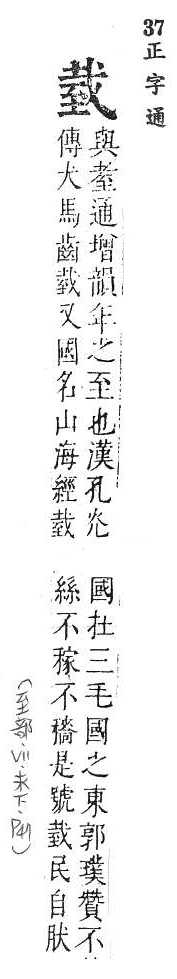 37 正字通
臷
與耋通增韻年之至也漢孔光
傳犬馬齒臷又國名山海經臷
國在三毛國之東郭璞贊不
絲不稼不穡是號臷民自肰
(至部·vii·未下·P41)